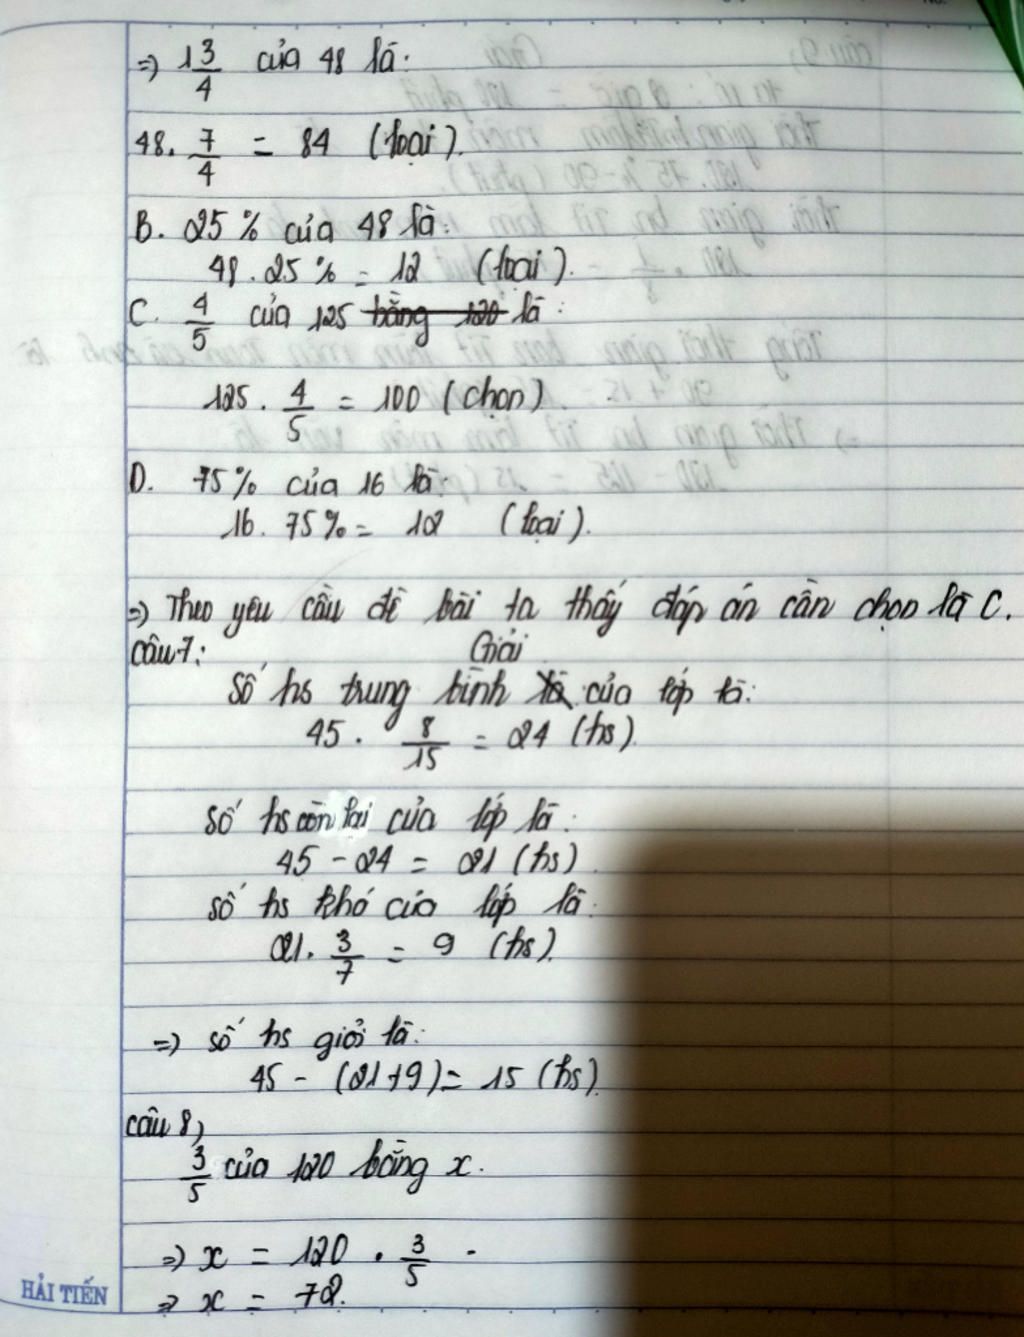 => 1 3/4 của 48 là:
48. 7/4 = 84 (loại).
B. 25% của 48 là:
48 . 25% = 12 (loại).
C. 4/5 của 125 bằng 120 là:
125 . 4/5 = 100 (chọn)
D. 75% của 16 là
16. 75% = 12 (loại).
=> Theo yêu cầu đề bài ta thấy đáp án cần chọn là C.
câu 7: Giải
Số hs trung bình là của lớp là:
45 . 8/15 = 24 (hs)
số hs còn lại của lớp là:
45 - 24 = 21 (hs)
số hs khá của lớp là:
21. 3/7 = 9 (hs).
=> số hs giỏi là:
45 - (21+9) = 15 (hs)
câu 8,
3/5 của 120 bằng x.
=> x = 120 . 3/5
=> x = 72.
HẢI TIẾN